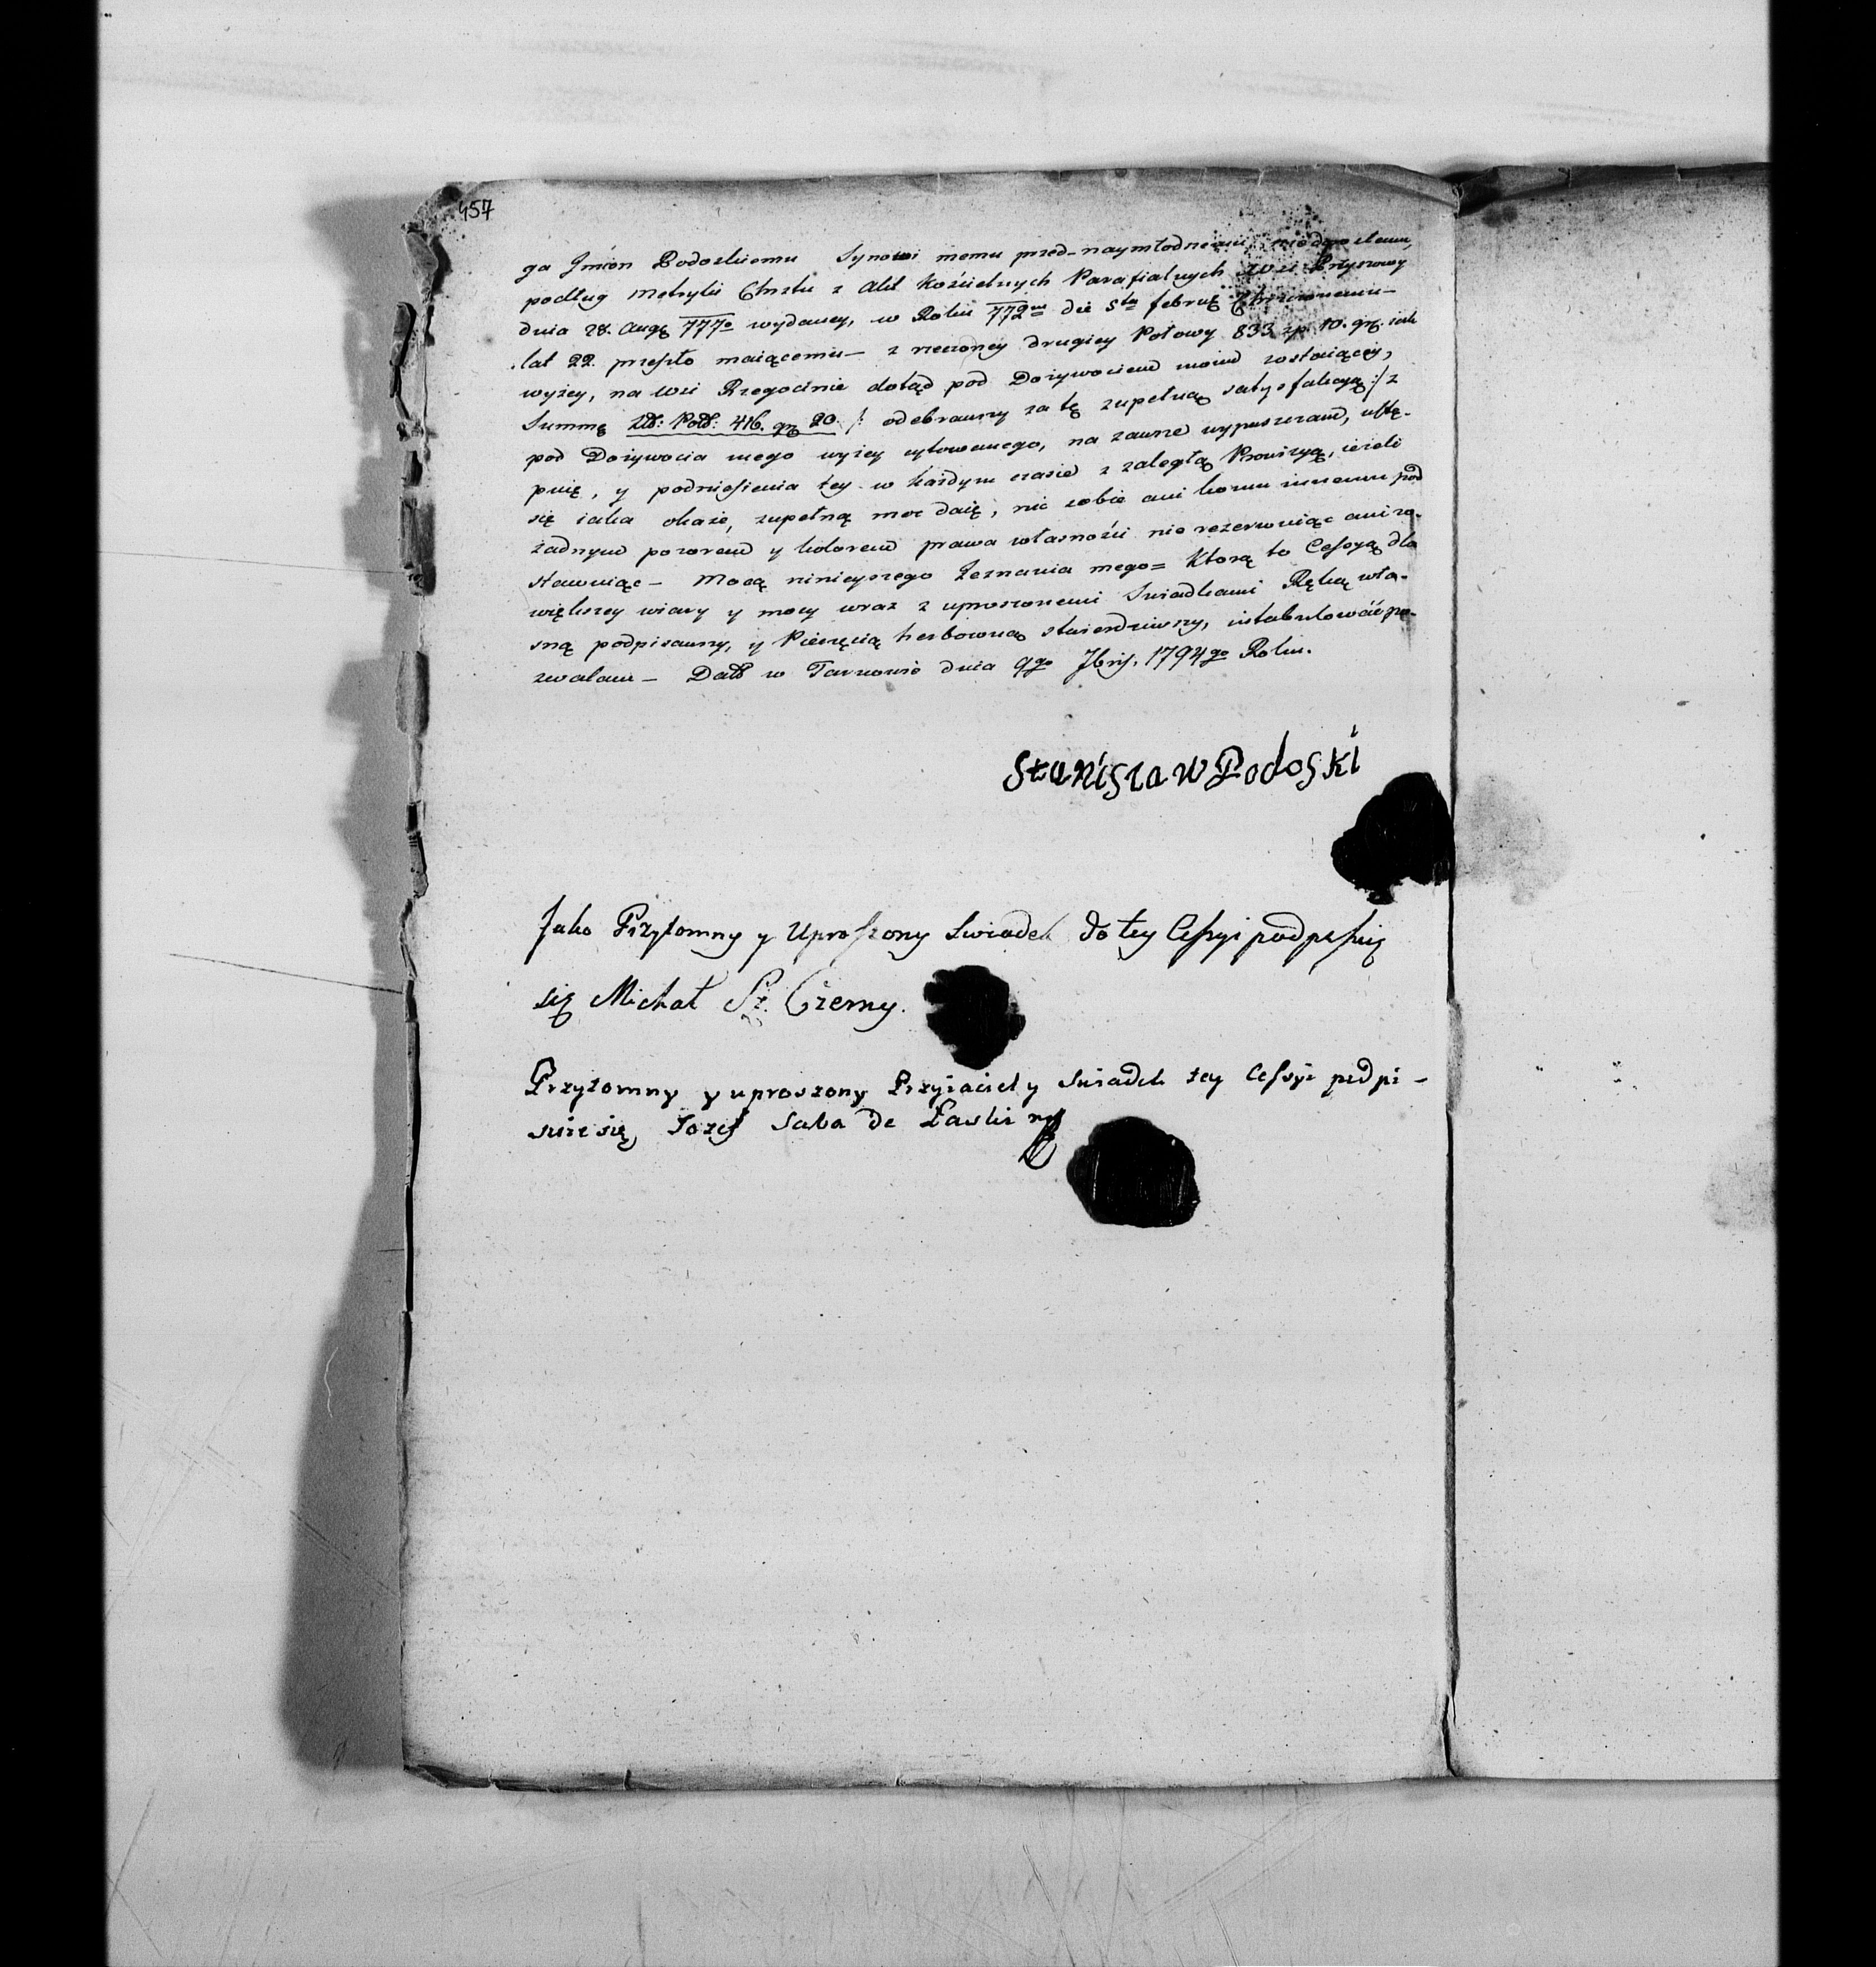 457
ga Jmion Podoskiemu Synowi memu przed-naymłodszemu
podług Metryki Chrztu z Akt Kościelnych Parafialnych Wsi Przyszowy
dnia 28. Augę 777o wydaney, w Roku 772m die 5ta februę Chrzconemu-
lat 22. przeszło maiącemu- z rzeczoney drugiey Połowy 833 zp. 10. gr. iak
wyżey, na Wsi Rzegocinie dotąd pod Dożywociem moim zostaiącey,
Summę Zł: Pol: 416. gr 20. /: odebrawszy za tę zupełną satysfakcyą :/ z
pod Dożywocia mego wyżey cytowanego, na zawsze wypuszczam, ustę-
puię, y podniesienia tey w każdym czasie z zaległą Prowizyą, ieżeli
się iaka okaże, zupełną moc daię, nic sobie ani komu innemu pod
żadnym pozorem y kolorem prawa własności nie rezerwuiąc ani zo-
stawuiąc- Mocą ninieyszego Zeznania mego= Którą to Cessyą dla
większey wiary y mocy wraz z uproszonemi Swiadkami Ręką wła-
sną podpisawszy, y Pieczęcią herbowną stwierdziwszy, intabulować po-
zwalam- Datt w Tarnowie dnia 9go 7bris. 1794go Roku.
Stanisław Podoski
Jako Przytomny y Uproszony Swiadek do tey Cessyi podpisuię
się Michał Sz. Czerny.
Przytomny y uproszony Przyiaciel y Swiadek tey Cessyi podpi-
suie się Jozef Saba de